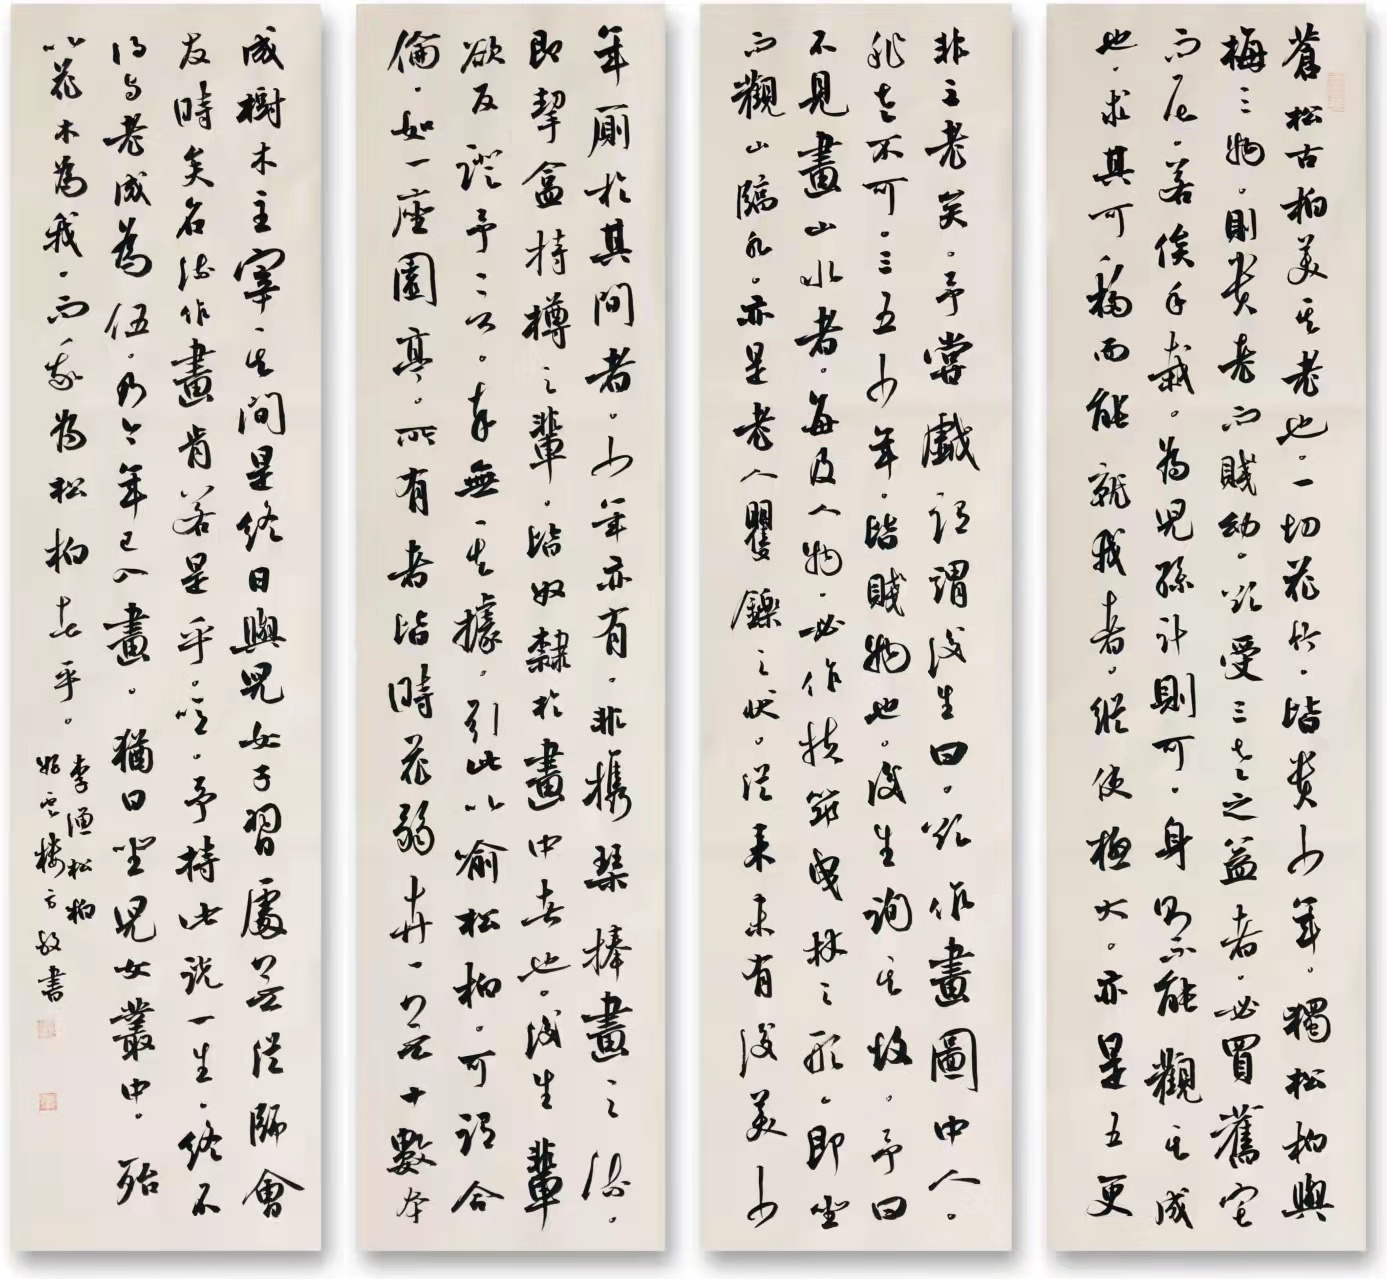 蒼松古柏美其老也。一切花竹。皆貴少年。獨松柏與
梅三物。則貴老而賤幼。欲受三老之益者。必買舊宅
而居。若俟手栽。為兒孫計則可。身則不能觀其成
也。求其可移而能就我者。縱使極大。亦是五更
非三老矣。予嘗戲謂謂後生曰。欲作畫圖中人。
非老不可。三五少年。皆賤物也。後生詢其故。予曰
不見畫山水者。每及人物。必作扶筇曳杖之形。即坐
而觀山臨水。亦是老人矍鑠之狀。從來未有俊美少
年廁於其間者。少年亦有。非攜琴捧畫之流。
即挈盒持樽之輩。皆奴隸於畫中者也。後生輩
欲反證予言。卒無其據。引此以喻松柏。可謂合
倫。如一座園亭。所有者皆時花弱卉。無十數本
成樹木主宰其間是終日與兒女子習處無從師會
友時矣名流作畫肯若是乎。噫。予持此說一生。終不
得與老成為伍。乃今年已入畫。猶日坐兒女叢中。殆
以花木為我。而我為松柏者乎。
李漁松柏
雲樓方書